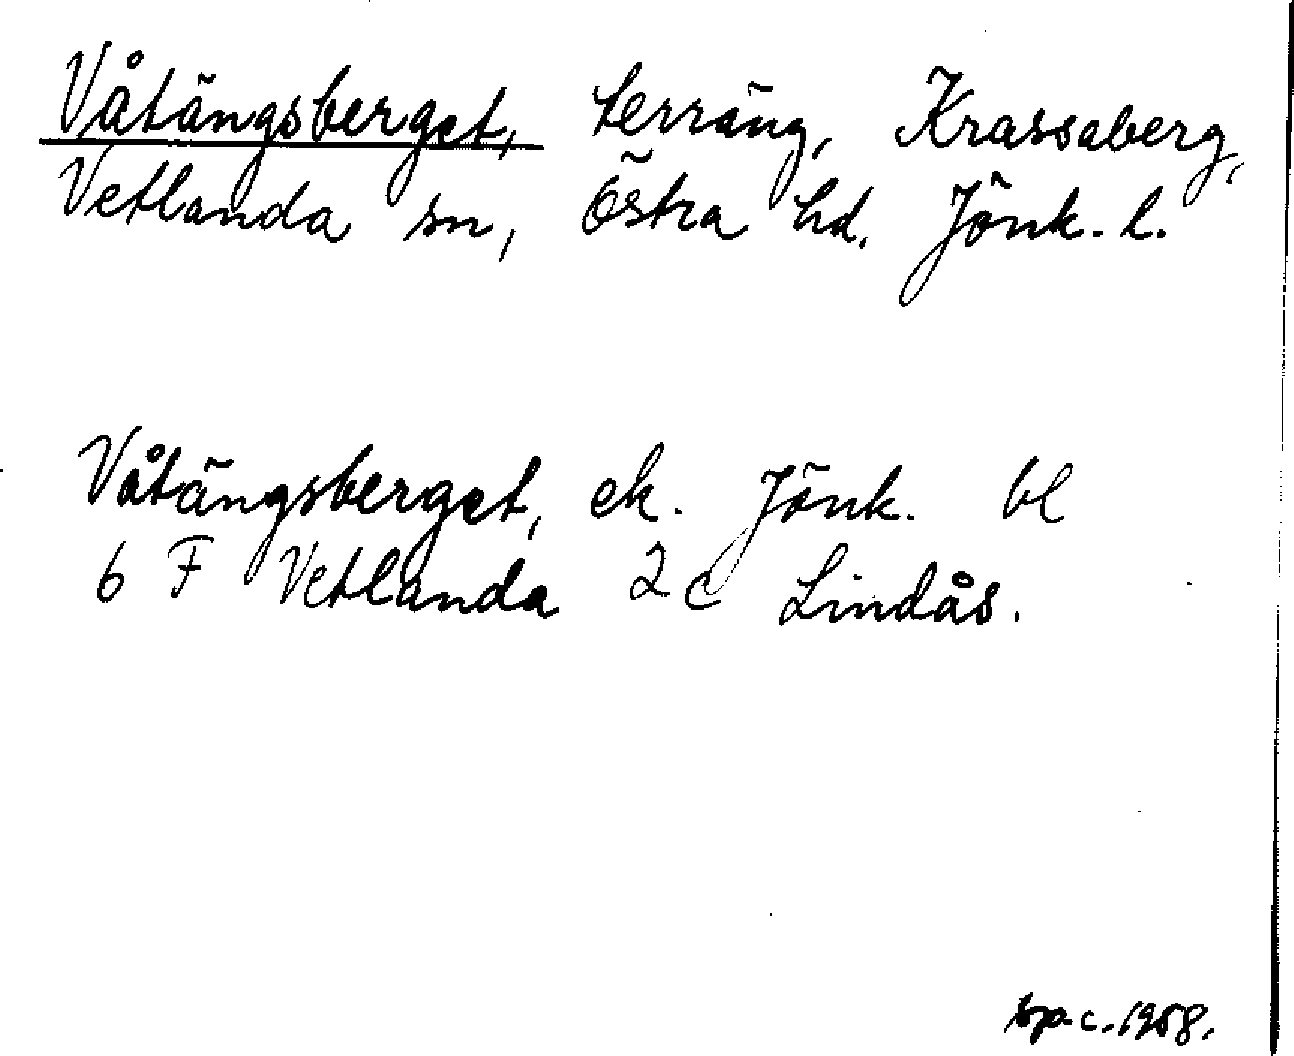 Våtängsberget, terräng, Krassaberg,
Vetlanda sn, Östra hd. Jönk. l.
Våtängsberget, ek. Jönk. bl
6 F Vetlanda 2 c Lindås.
c. 1958.